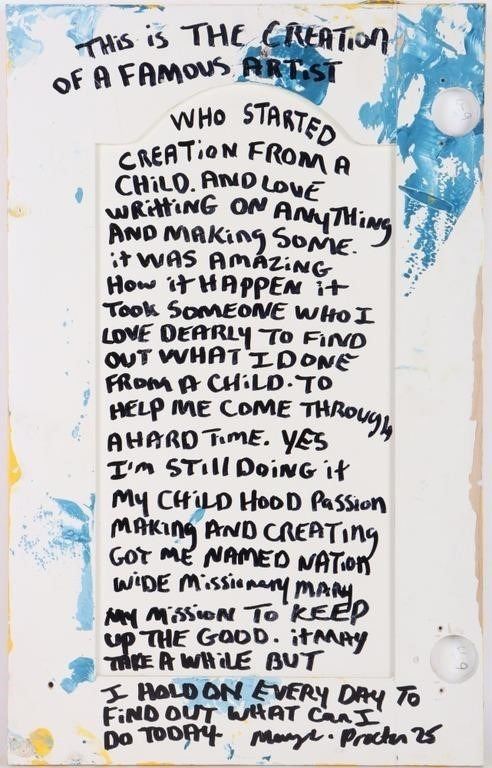 THIS IS THE CREATION
OF A FAMOUS ARTIST
WHO STARTED
CREATION FROM A
CHILD. AND LOVE
WRITTING ON ANYTHING
AND MAKING SOME.
iT WAS AMAZING
HOW iT HAPPEN iT
TOOK SOMEONE WHO I
LOVE DEARLY TO FIND
OUT WHAT I DONE
FROM A CHiLD. TO
HELP ME COME THROUGH
A HARD TiME. YES
I'm STill DOiNG iT
MY CHILD HOOD PASSiON
MAKING AND CREATiNG
GOT ME NAMED NATiON
WiDE MiSSiONARY MARY
MY MiSSiON TO KEEP
UP THE GOOD. iT MAY
TAKE A WHiLE BUT
I HOLD ON EVERY DAY TO
FiND OUT WHAT Can I
DO TODAY Mary L. Procter 25